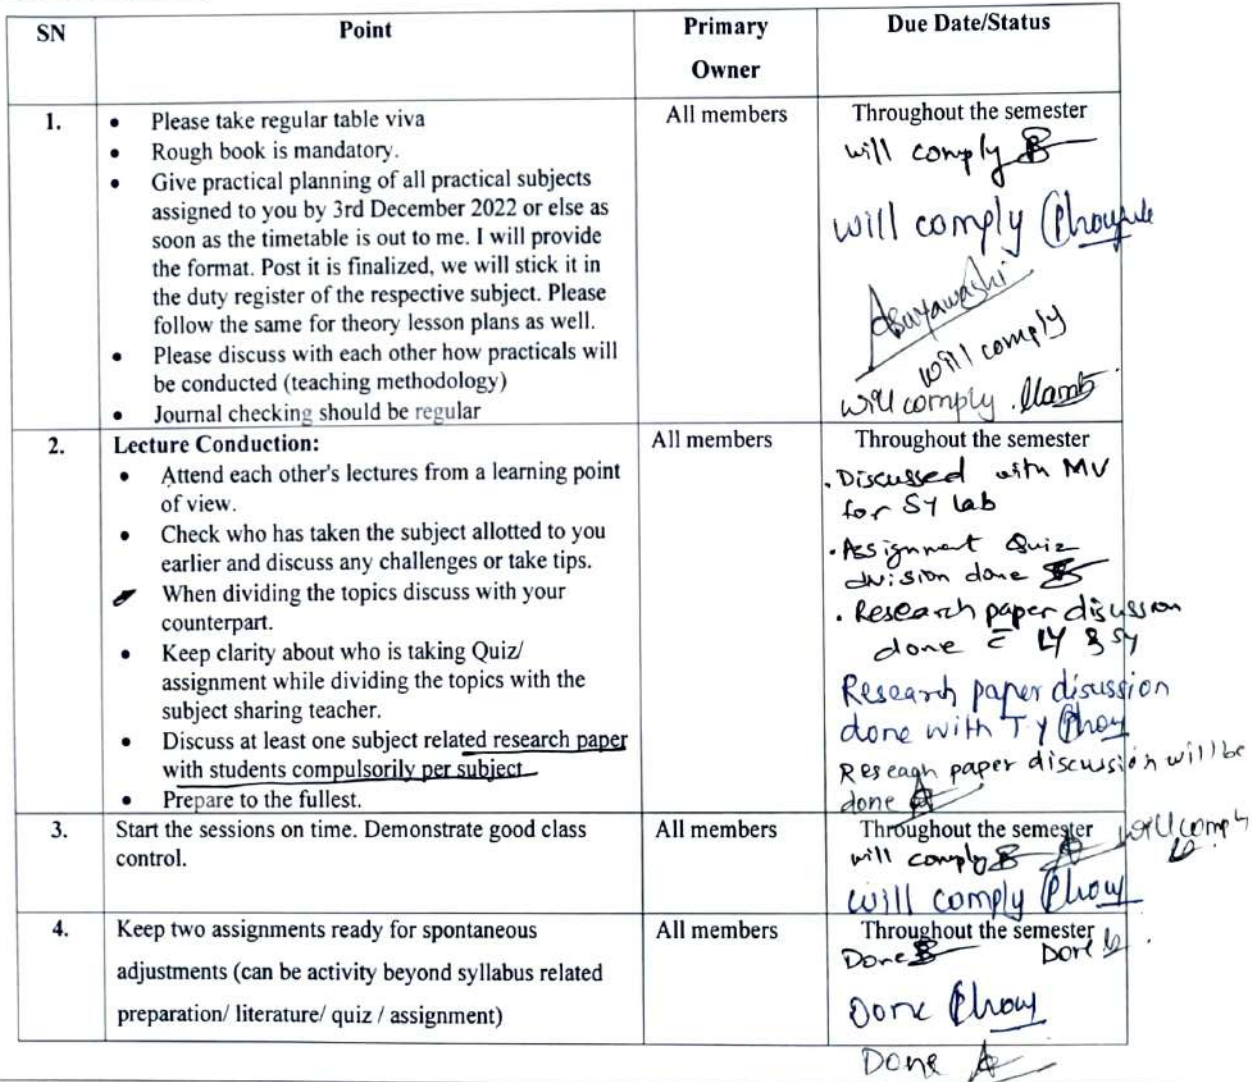 SN Point Primary Owner Due Date/Status
1.
• Please take regular table viva
• Rough book is mandatory.
• Give practical planning of all practical subjects
assigned to you by 3rd December 2022 or else as
soon as the timetable is out to me. I will provide
the format. Post it is finalized, we will stick it in
the duty register of the respective subject. Please
follow the same for theory lesson plans as well.
• Please discuss with each other how practicals will
be conducted (teaching methodology)
• Journal checking should be regular
All members
Throughout the semester
will comply
will comply
will comply
will comply
2.
Lecture Conduction:
• Attend each other's lectures from a learning point
of view.
• Check who has taken the subject allotted to you
earlier and discuss any challenges or take tips.
• When dividing the topics discuss with your
counterpart.
• Keep clarity about who is taking Quiz/
assignment while dividing the topics with the
subject sharing teacher.
• Discuss at least one subject related research paper
with students compulsorily per subject
• Prepare to the fullest.
All members
Throughout the semester
. Discussed with MV
for SY lab
. Assignment Quiz
division done
. Research paper discussion
done c̄ LY & SY
Research paper disussion
done with T Y
Reseagh paper discussion will be
done
3.
Start the sessions on time. Demonstrate good class
control.
All members
Throughout the semester
will comply
will comply
will comply
4.
Keep two assignments ready for spontaneous
adjustments (can be activity beyond syllabus related
preparation/ literature/ quiz / assignment)
All members
Throughout the semester
Done
Done
Done
Done